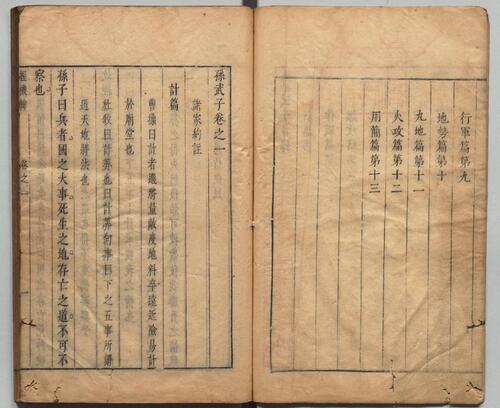 行軍篇第九
地勢篇第十
九地篇第十一
火攻篇第十二
用間篇第十三
孫武子卷之一
諸家約註
計篇
曹操曰計者選將量敵度地料卒遠近險易計
於廟堂也
杜牧曰計算也曰計算何事曰下之五事所謂
道天地將法也
孫子曰兵者國之大事。死生之地。存亡之道。不可不
察也。
卷之一
一